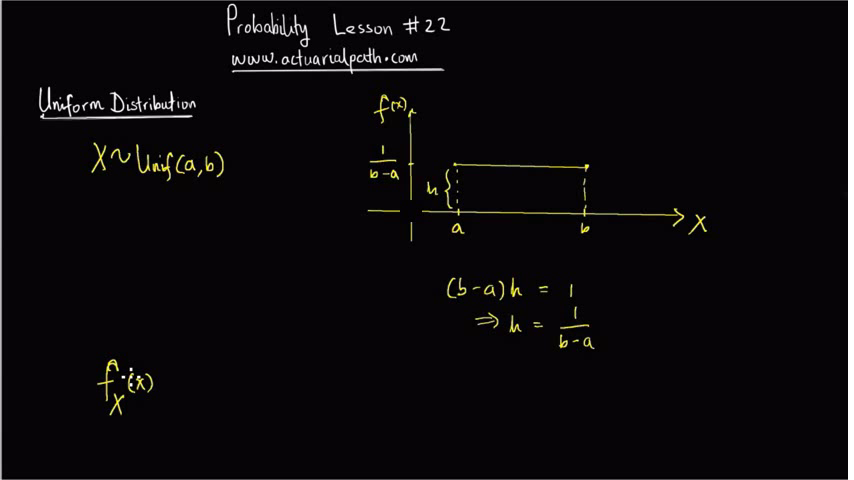 Probability Lesson #22
www.actuarialpath.com
Uniform Distribution
X ~ Unif(a,b)
f(x)
1
b-a
h
a
b
X
(b-a)h = 1
⇒ h = 1/(b-a)
f_X(x)